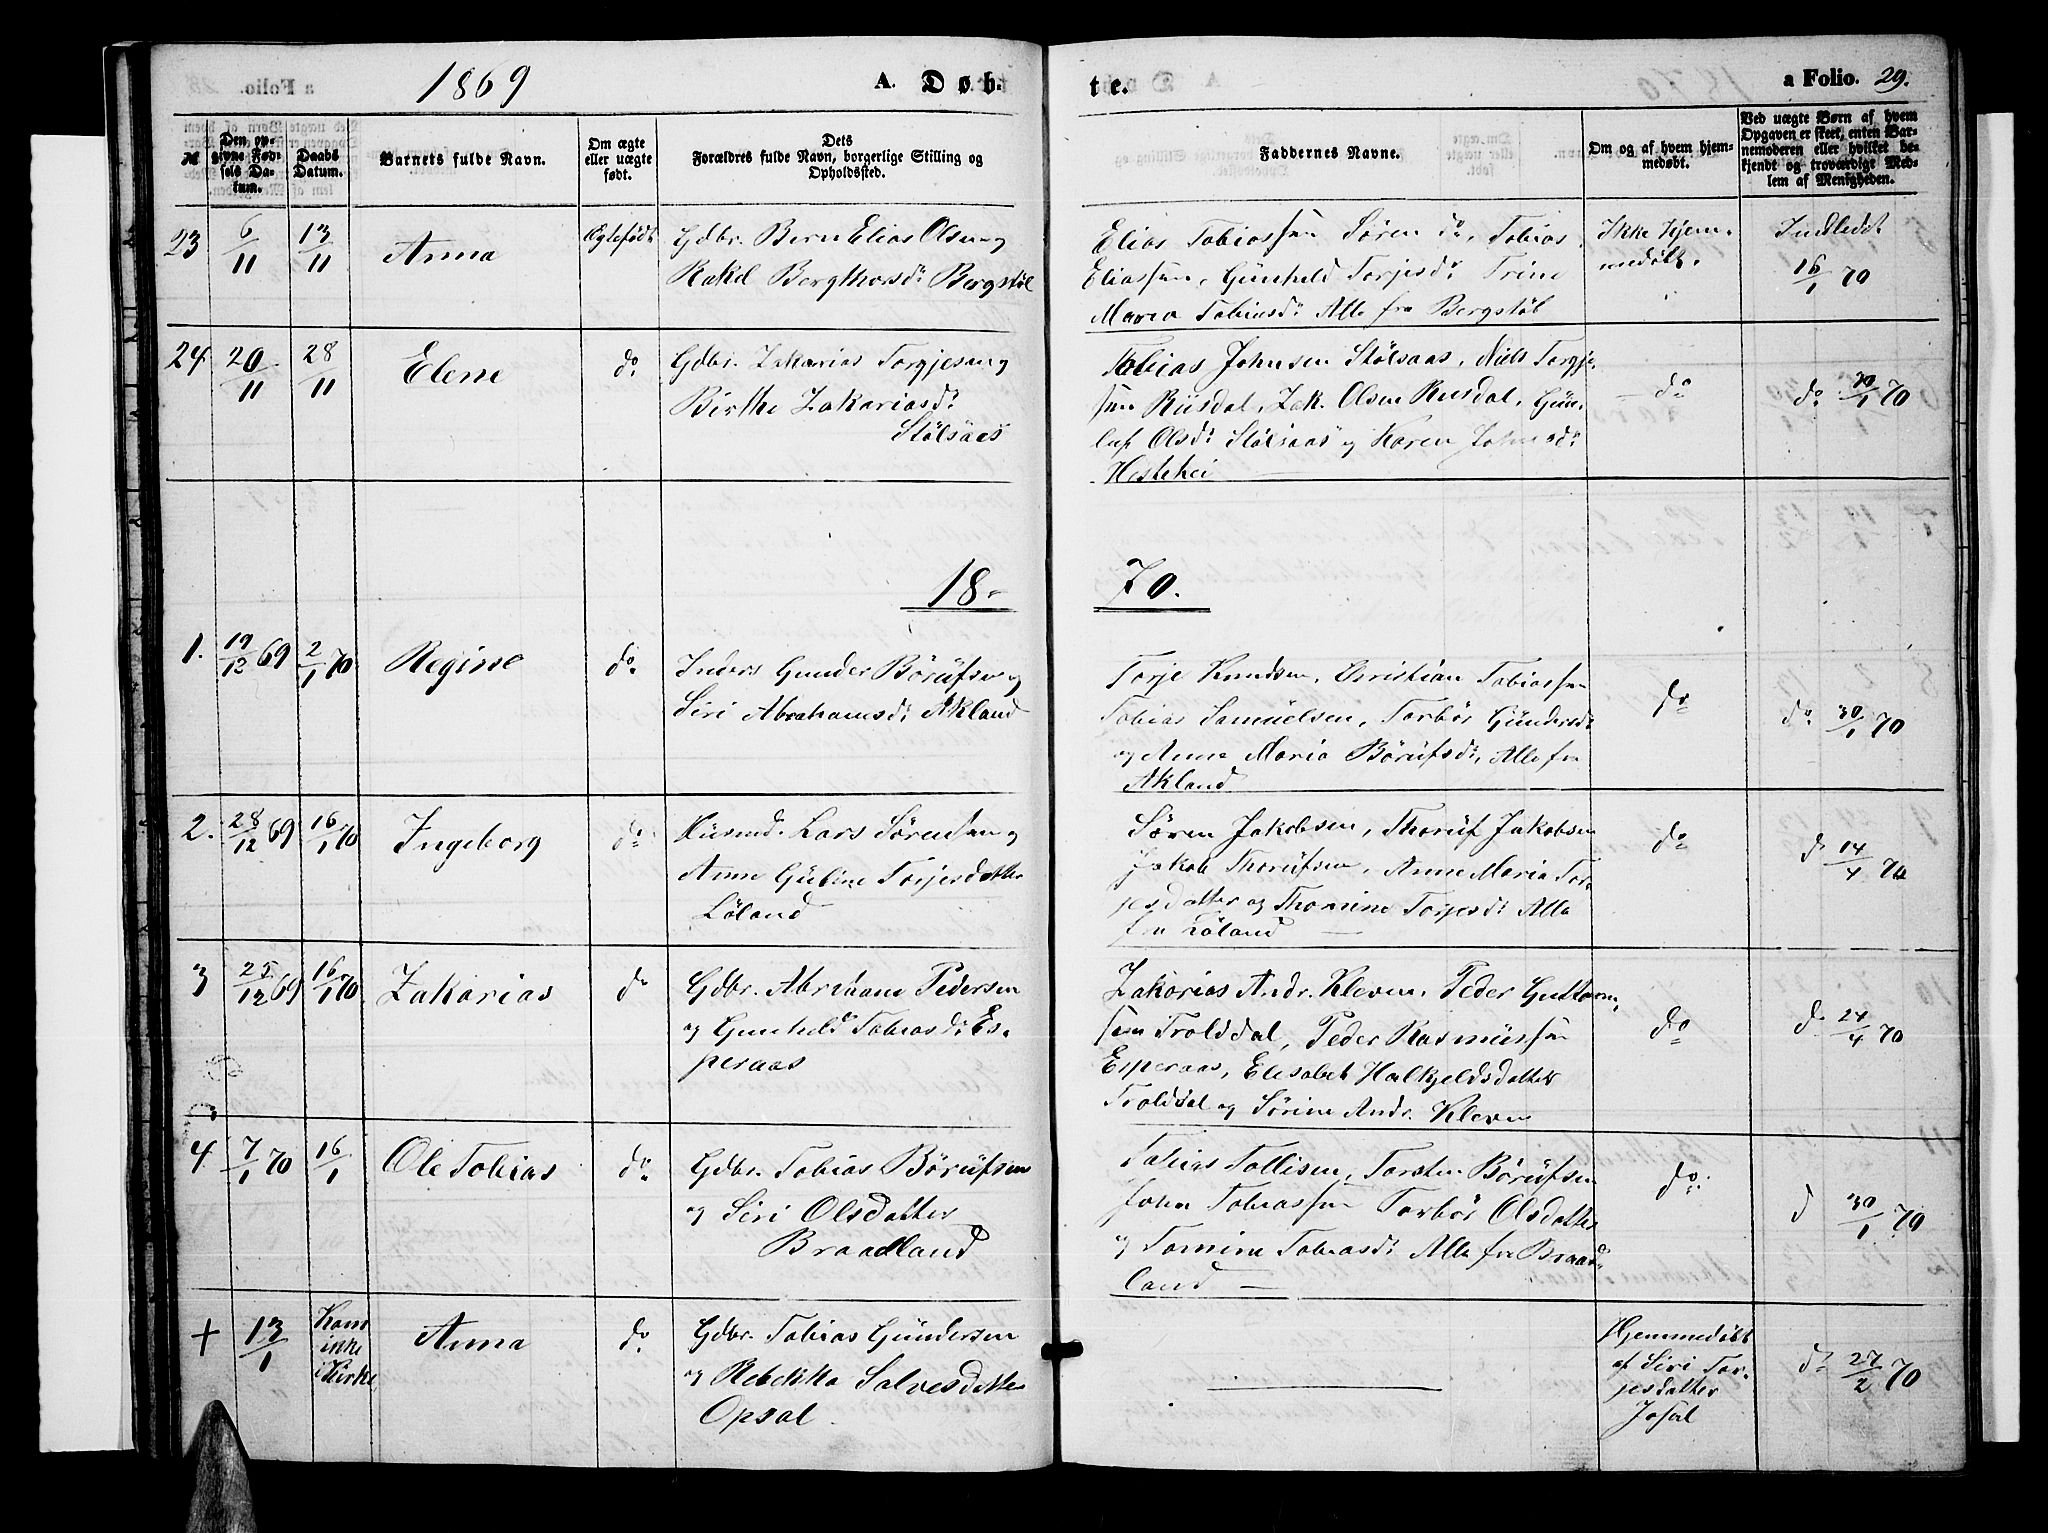 1869
A. Døb-
te.
a Folio. 29.
№
Den op-
givne Fød-
sels Da-
tum.
Daabs
Datum.
Barnets fulde Navn.
Om ægte
eller uægte
født.
Dets
Forældres fulde Navn, borgerlige Stilling og
Opholdssted.
Faddernes Navne.
Om og af hvem hjem-
medøbt.
Ved uægte Børn af hvem
Opgaven er skeet, enten Bar-
nemoderen eller hvilket be-
kjendt og troværdige Med-
lem af Menigheden.
23 6/11 13/11 Anna Ægtefødt
Gdbr. Bern Elias Olsen og
Rakel Bergthorsd: Bergstøl
Elias Tobiassen Sören do, Tobias
Eliassen, Günheld Torjesd: Trine
Maria Tobiasd: Alle fra Bergstöl
Ikke Hjem-
medöbt.
Indledet
16/1 70
24 20/11 28/11 Elene do.
Gdbr. Zakarias Torgjesen og
Birthe Zakariasd:
Stölsaas
Tobias Johnsen Stölsaas, Niels Torgje-
sen Riisdal, Zak. Olsen Riisdal, Gün-
luf Olsd: Stölsaas og Karen Johnsd:
Hestehei
do
do. 30/1 70
18-
70.
1. 19/12 69 2/1 70 Regine do.
Inders Gunder Börüfsen og
Siri Abrahamsd: Akland
Torje Knudsen, Christian Tobiassen
Tobias Samüelsen, Torbör Günders d:
og Anne Maria Börüfsd:, Alle fra
Akland
do
do. 30/1 70
2. 28/12 69 16/1 70 Ingeborg do.
Hüsmd. Lars Sörensen og
Anne Gübine Torjesdatter
Löland
Sören Jakobsen, Thorüf Jakobsen
Jakob Thorüfsen, Anne Maria Tor-
jesdatter og Thomine Torjesd: Alle
fra Löland
do
do 14/4 70
3 25/12 69 16/1 70 Zakarias do
Gdbr. Abraham Pedersen
og Gunheld Tobiasd: Es-
peraas
Zakarias Andr. Kleven, Peder Guttorm-
sen Trolddal, Peder Rasmüssen
Esperaas, Elisabet Halkjeldsdatter
Trolddal og Sörine Andr. Kleven
do
do 24/4 70
4 7/1 70 16/1 Ole Tobias do.
Gdbr. Tobias Börüfsen
og Siri Olsdatter
Braadland
Tobias Tollisen, Torsten Börüfsen
John Tobiassen Torbör Olsdatter
og Tomine Tobiasd: Alle fra Braad-
land
do.
d 30/1 70
+ 13/1 Kom
ikke
i Kirke
Anna do.
Gdbr. Tobias Gündersen
og Rebekka Salvesdatter
Opsal.
Hjemmedöbt
af Siri Tor-
jesdatter
do 27/2 70